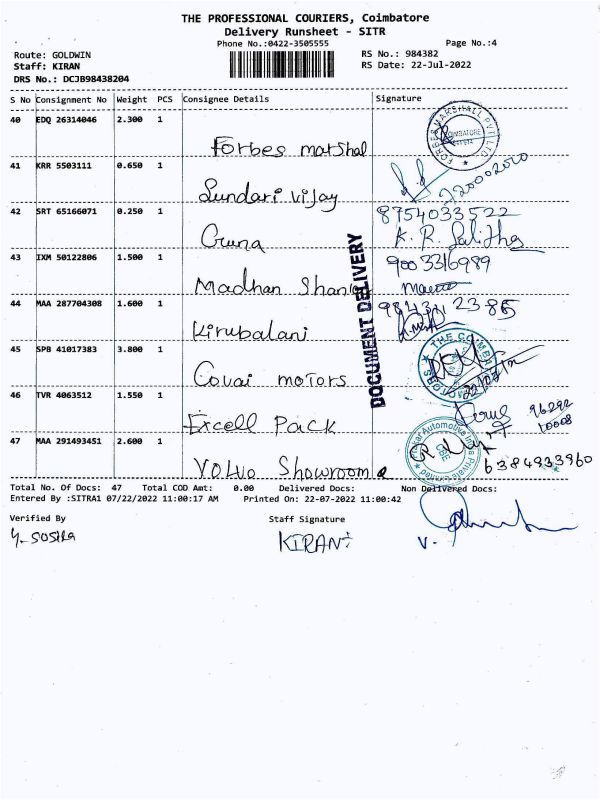 THE PROFESSIONAL COURIERS, Coimbatore
Delivery Runsheet - SITR
Phone No.:0422-3505555 Page No.:4
Route: GOLDWIN RS No.: 984382
Staff: KIRAN RS Date: 22-Jul-2022
DRS No.: DCJB98438204
S No Consignment No Weight PCS Consignee Details Signature
40 EDQ 26314046 2.300 1
Forbes marshal
FORBES MARSHALL PVT LTD COIMBATORE
41 KRR 5503111 0.650 1
Sundari vijay
42 SRT 65166071 0.250 1 8754033522
Guna K. R. Lalitha
43 IXM 50122806 1.500 1 9003316989
Madhan Shankar
44 MAA 287704308 1.600 1
Kirubalani
45 SPB 41017383 3.800 1
Covai motors
THE COIMBA
46 TVR 4063512 1.550 1 96292
Excell Pack 10008
47 MAA 291493451 2.600 1
Volvo Showroom 6384933960
DOCUMENT DELIVERY
Total No. Of Docs: 47 Total COD Amt: 0.00 Delivered Docs: Non Delivered Docs:
Entered By :SITRA1 07/22/2022 11:00:17 AM Printed On: 22-07-2022 11:00:42
Verified By Staff Signature
KIRAN